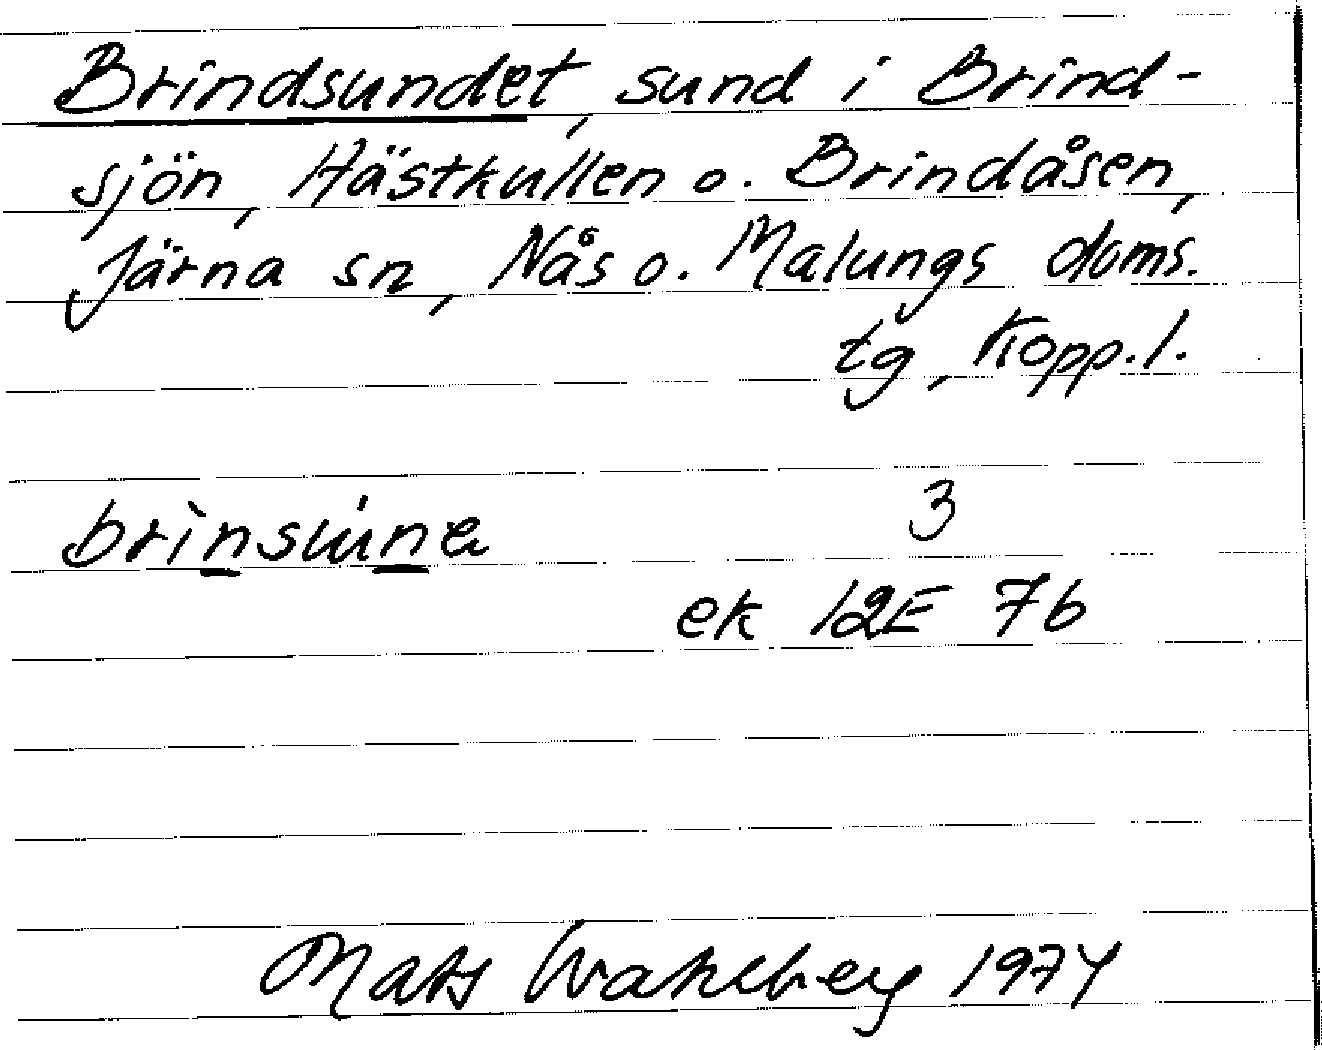 Brindsundet, sund i Brind-
sjön, Hästkullen o. Brindåsen,
Järna sn, Nås o. Malungs doms.
tg, Kopp.l.
3
ek 12E 7b
Mats Wahlberg 1974